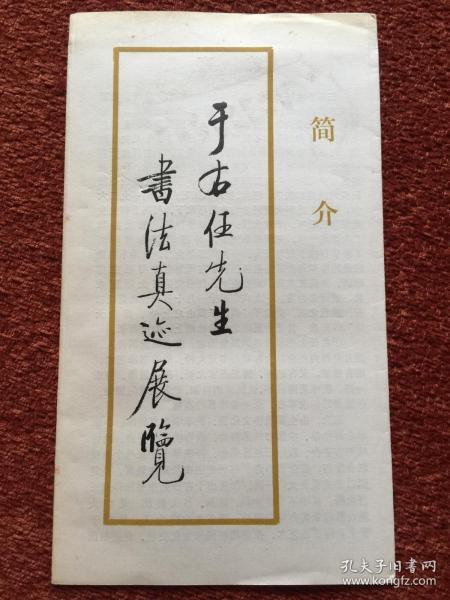 简介
于右任先生
書法真迹展覽
孔夫子旧书网
www.kongfz.com